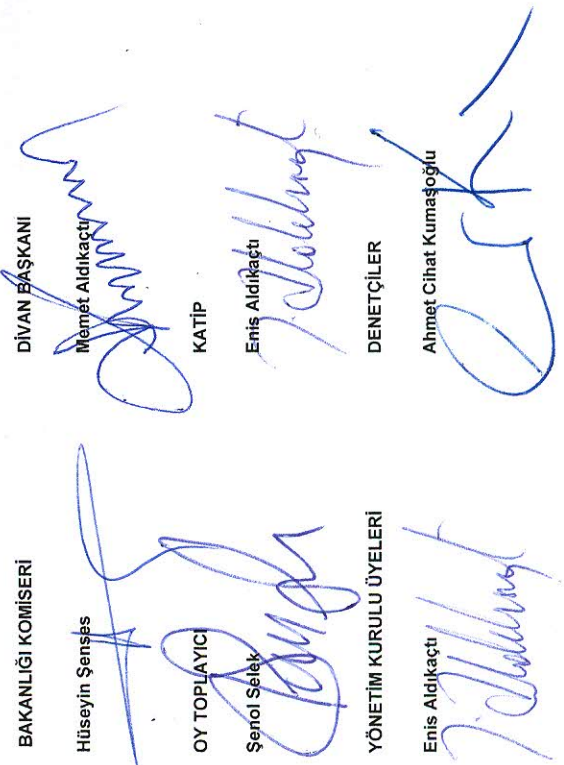 BAKANLIĞI KOMİSERİ
Hüseyin Şenses
OY TOPLAYICI
Şenol Selek
YÖNETİM KURULU ÜYELERİ
Enis Aldıkaçtı
DİVAN BAŞKANI
Memet Aldıkaçtı
KATİP
Enis Aldıkaçtı
DENETÇİLER
Ahmet Cihat Kumaşoğlu